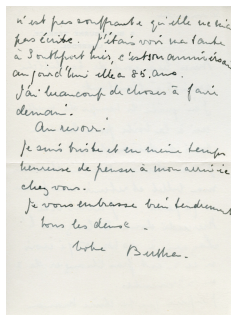 n'est pas souffrante qu'elle ne m'a
pas écrite. J'étais voir ma tante
à Southport hier, c'est son anniversaire
aujourd'hui elle a 85 ans.
J'ai beaucoup de choses à faire
demain.
Au revoir!
Je suis triste et en même temps
heureuse de penser à mon arrivée
chez vous.
Je vous embrasse bien tendrement
tous les deux.
Votre Bertha.